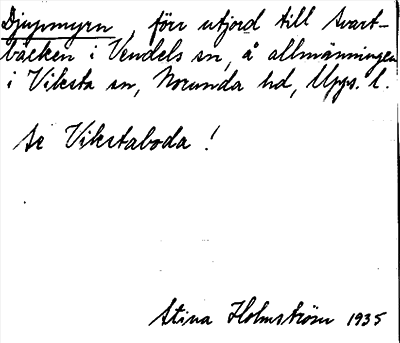 Djupmyrn, förr utjord till Svart-
bäcken i Vendels sn, å allmänningen
i Viksta sn, Norunda hd, Upps. l.
Se Vikstaboda!
Stina Holmström 1935